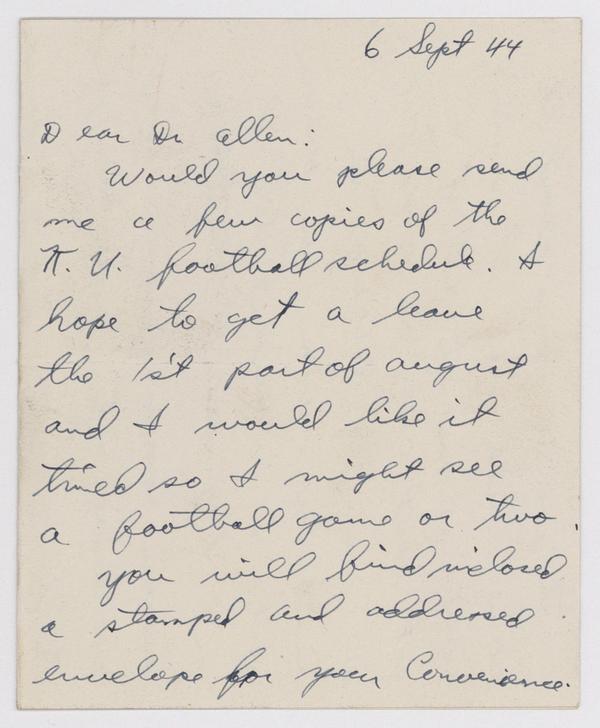 6 Sept 44
Dear Dr Allen:
Would you please send
me a few copies of the
K. U. football schedule. I
hope to get a leave
the 1st part of august
and I would like it
timed so I might see
a football game or two.
you will find inclosed
a stamped and addressed
envelope for your Convenience.